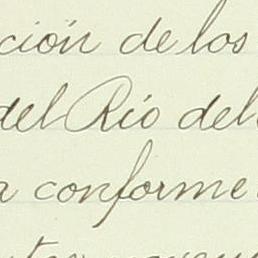 ción de los
del Río del
a conforme